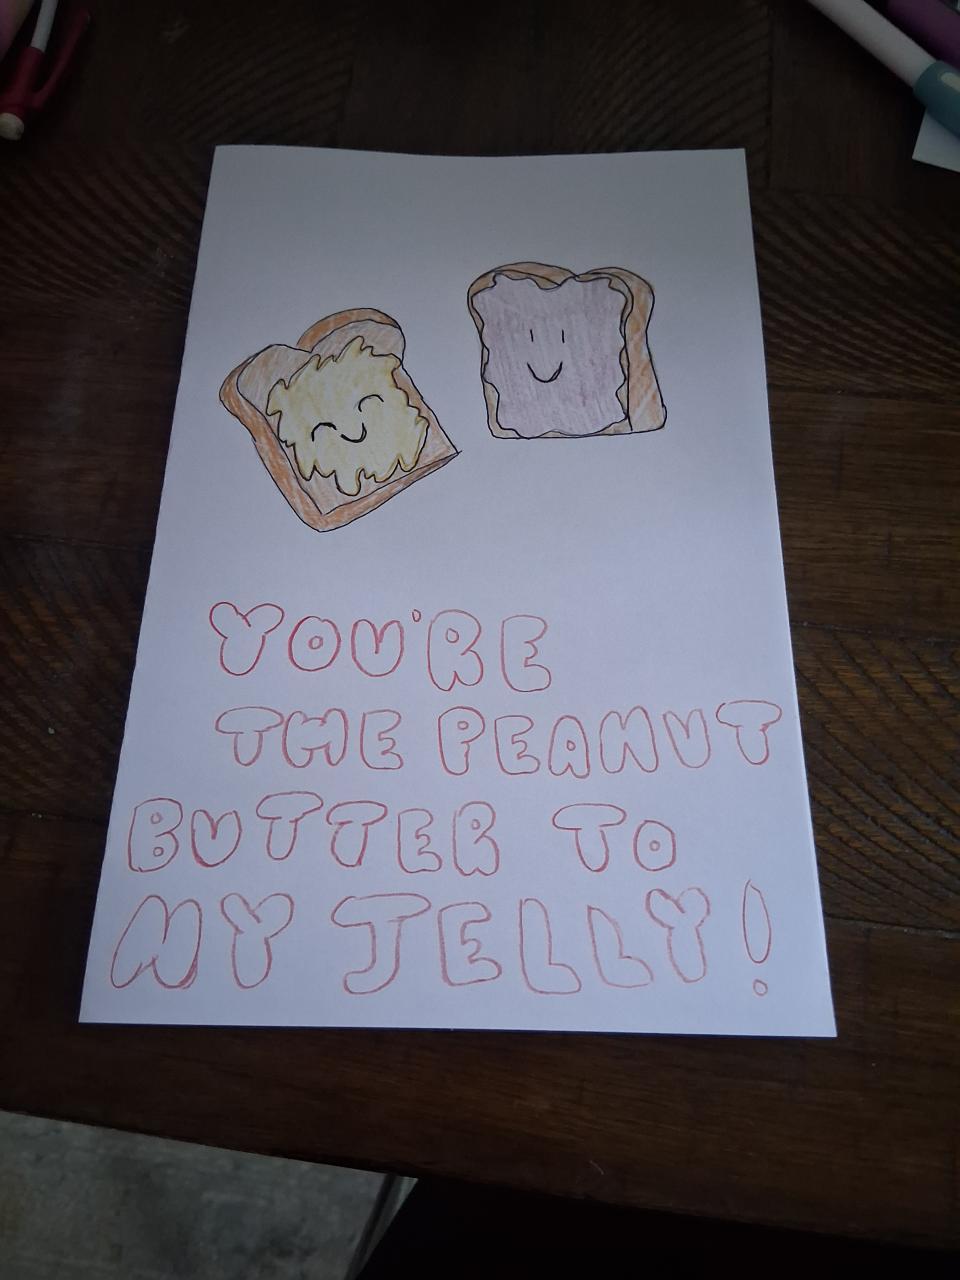 YOU'RE
THE PEANUT
BUTTER TO
MY JELLY!